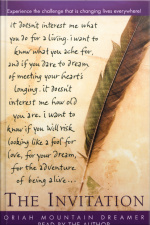 Experience the challenge that is changing lives everywhere!
it doesn't interest me what
you do for a living. i want to
know what you ache for,
and if you dare to dream
of meeting your heart's
longing. it doesn't
interest me how old
you are. i want to
know if you will risk
looking like a fool for
love, for your dream,
for the adventure
of being alive...
THE INVITATION
ORIAH MOUNTAIN DREAMER
READ BY THE AUTHOR